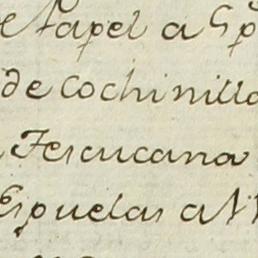 Papel a
de cochinilla
Tescucana
Espuelas a